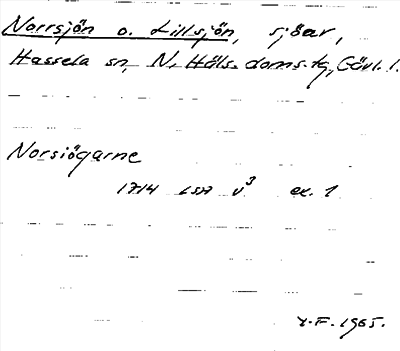 Norrsjön o. Lillsjön, sjöar,
Hassela sn, N. Häls. doms.tg, Gävl. l.
Norsiögarne
1714 LSA V³ ex. 1
Y.F. 1965.